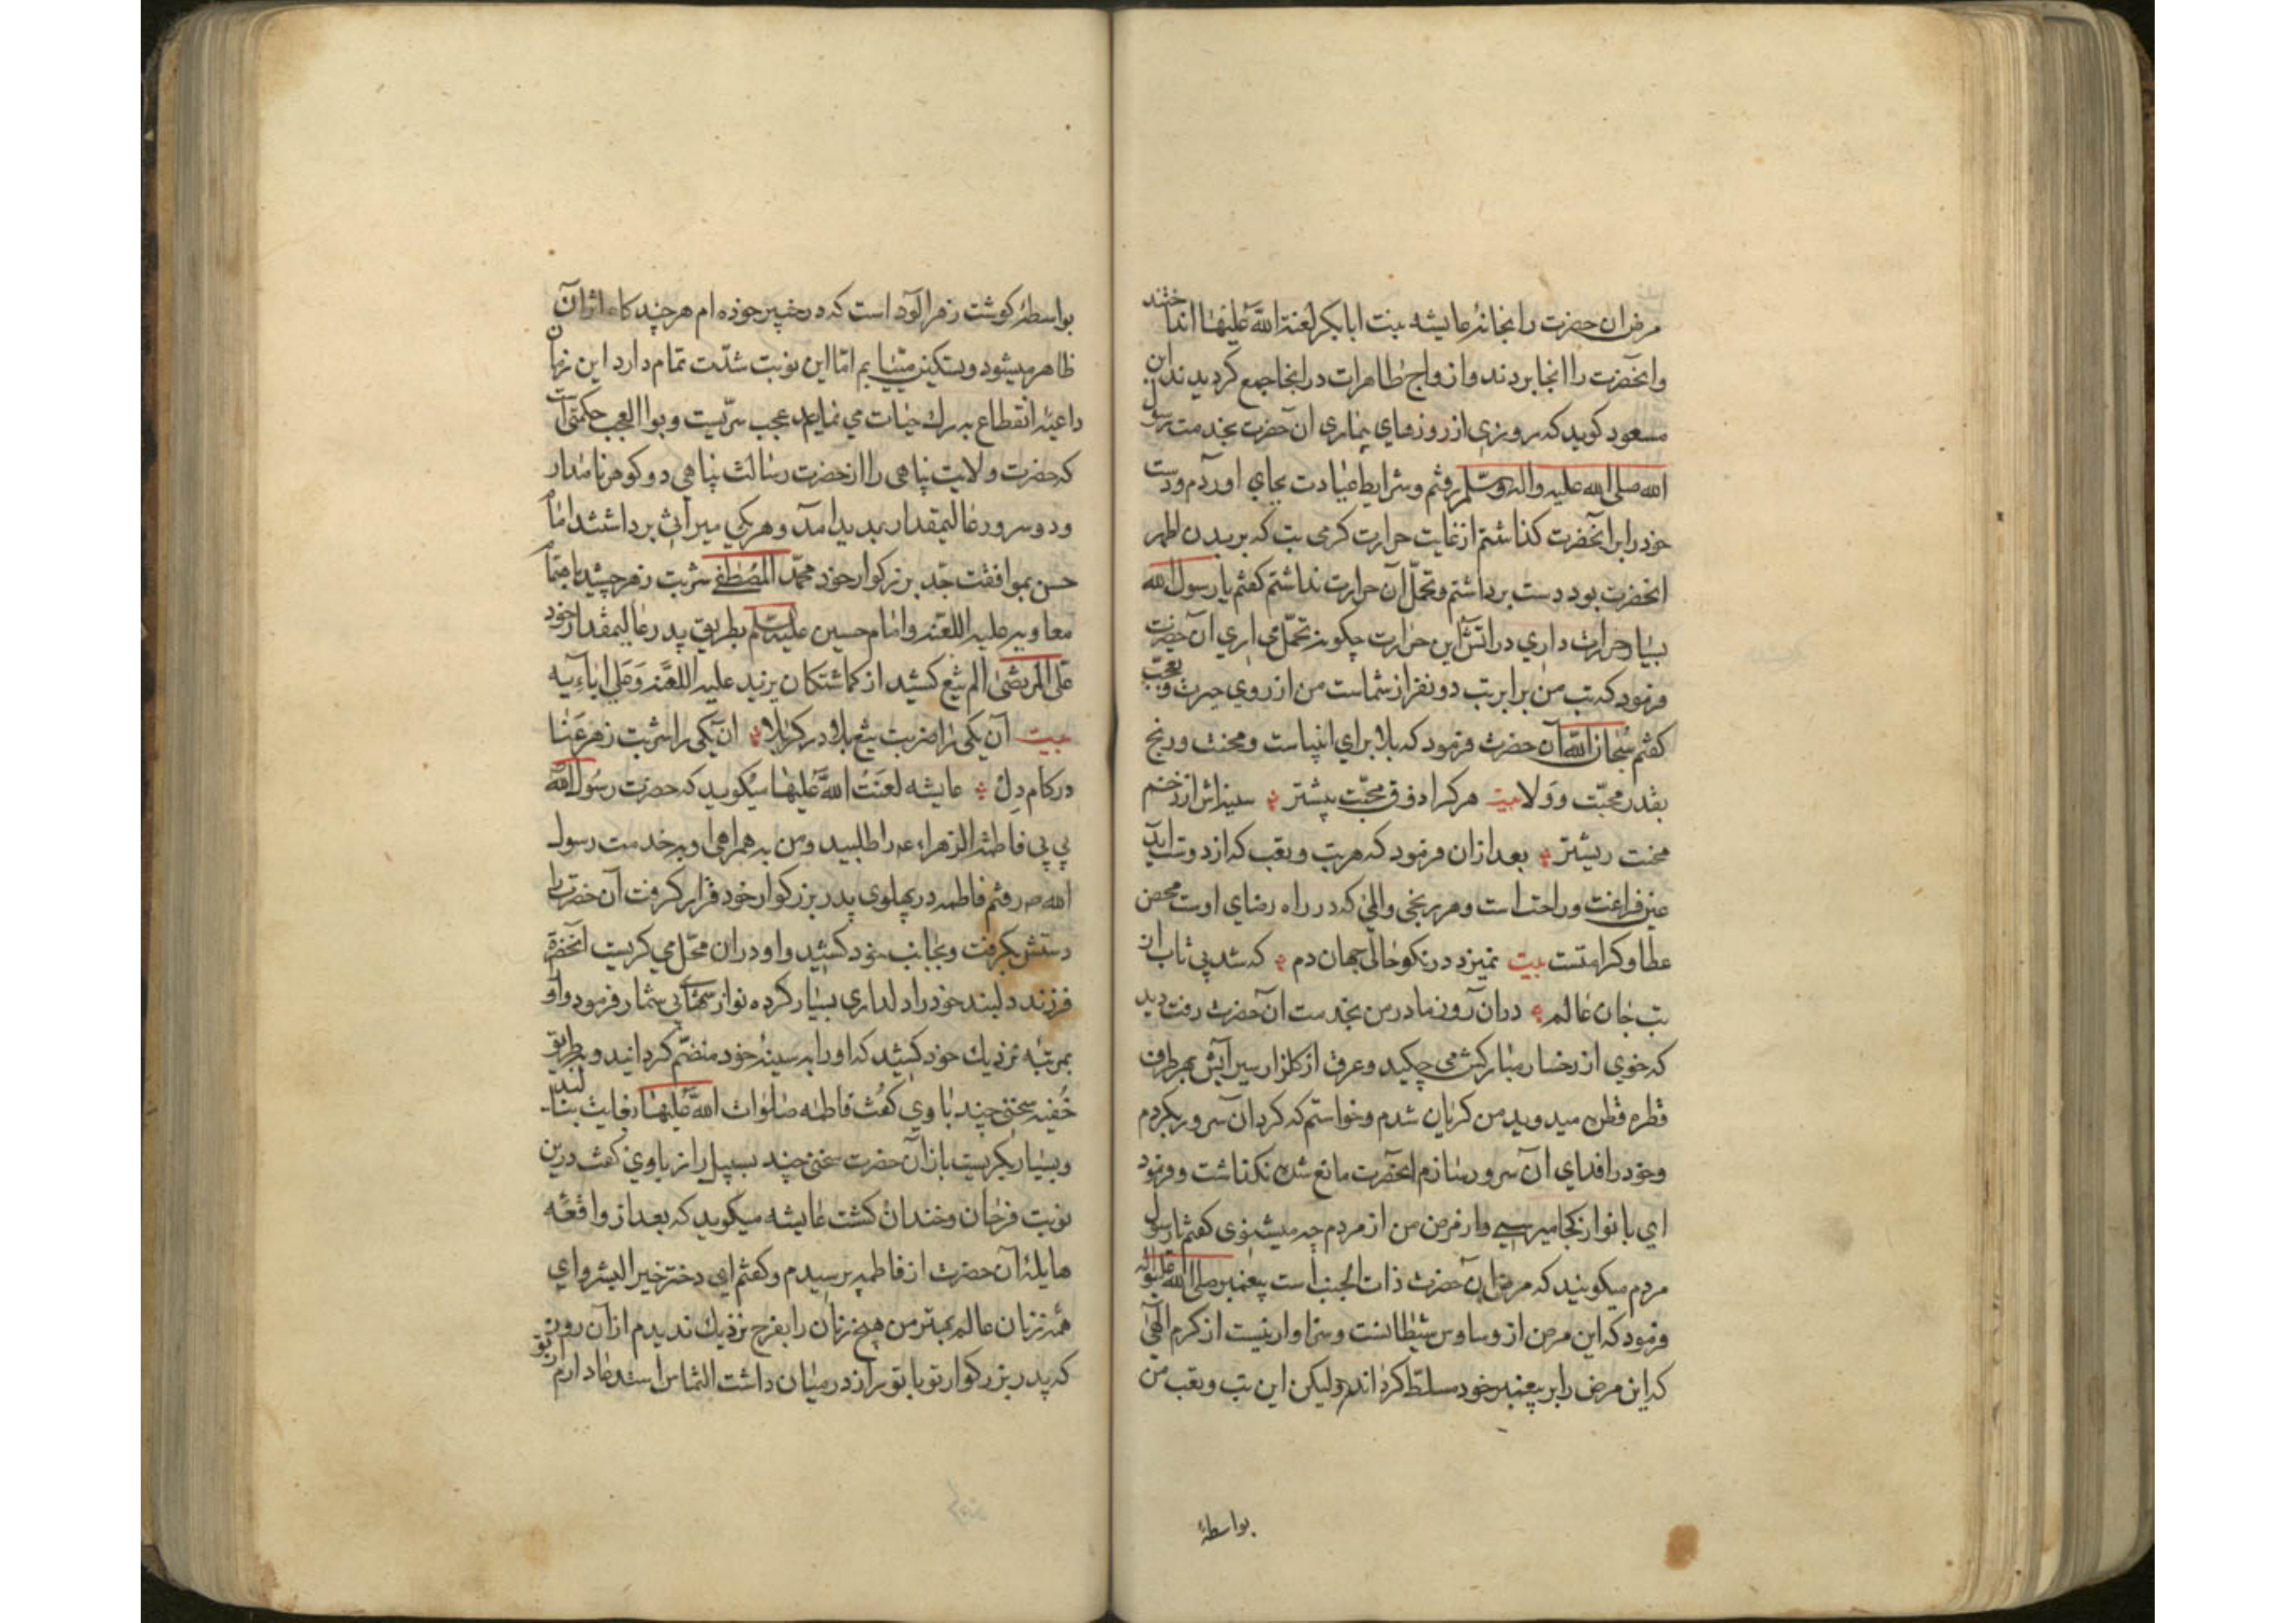 مرض ان حضرت را بخانهٔ عایشه بنت ابابکر لعنة اللّٰه علیها انداختند
و انحضرت را انجا بردند و ازواج طاهرات در انجا جمع کردیدند ابن
مسعود کوید که روزی از روزهای بیماری ان حضرت بخدمت رسول
الله صلی الله علیه واله وسلّم رفتم و شرایط عیادت بجای اوردم و دست
خود را بر انحضرت کذاشتم از غایت حرارت کرمی تب که بر بدن اطهر
انحضرت بود دست برداشتم و تحمّل آن حرارت نداشتم کفتم یا رسول الله
بسیار حرارت داری در اتش این حرارت چکونه تحمّل می اری ان حضرت
فرمود که تب من برابر تب دو نفر از شماست من از روی حیرت و تعجّب
کفتم سُبحان اللّٰه آن حضرت فرمود که بلا برای انبیاست و محنت و رنج
بقدر محبّت و وَلا بیت هرکرا ذوق محبّت بیشتر سینه اش از زخم
محنت ریشتر بعد ازان فرمود که هر تب و تعب که از دوست اید
عین فراغت و راحت است و هر رنجی و المی که در راه رضای اوست محض
عطا و کرامتست بیت نمیزد در نکو حالی جهان دم که شد بی تاب از
تب جان عالم دران روز مادر من بخدمت ان حضرت رفت دید
که خوی از رخسار مبارکش می چکید و عرق از کلزار سیرابش بهر طرف
قطره قطره میدوید من کریان شدم و خواستم که کرد ان سرور بکردم
و خود را فدای ان سرور سازم انحضرت مانع شده نکذاشت و فرمود
ای بانو از کجا میرسی و از مرض من از مردم چه میشنوی کفتم یا رسول
مردم میکویند که مرض ان حضرت ذات الجنب است پیغمبر صلی اللّٰه علیه واله
فرمود که این مرض از وساوس شیطانست و سزاوار نیست از کرم الهی
که این مرض را بر پیغمبر خود مسلّط کرداند ولیکن این تب و تعب من
بواسطهٔ
بواسطهٔ کوشت زهر الود است که در خیبر خوذه ام هر چند کاه اثر آن
ظاهر میشود و تسکین مییابم امّا این نوبت شدّت تمام دارد این زمان
داعیهٔ انقطاع به رک حیات می نماید عجب سرّیست و بوالعجب حکمتی است
که حضرت ولایت پناهی را از حضرت رسالت پناهی دو کوهر نامدار
و دو سرور عالیمقدار پدید امد و هر یکی میراثی برداشتند امام
حسن بموافقت جّد بزرکوار خود محمّد المُصطفی شربت زهر چشید باهتمام
معاویه علیه اللعنه و امام حسین علیه السلم بطریق پدر عالیمقدار خود
علی المرتضی الم تیغ کشید از کماشتکان یزید علیه اللعنه وَعَلی ابائه
بیت آن یکی را ضربت تیغ بلا در کربلا ان یکی را شربت زهر عَنا
در کام دِل عایشه لعنَتُ اللّٰه علیها میکوید که حضرت رسُول اللّٰه
بی بی فاطمة الزهراء عه را طلبید و من به همراهی او به خدمت رسول
الله صه رفتم فاطمه در پهلوی پدر بزرکوار خود قرار کرفت آن حضرت را
دستش بکرفت و بجانب خود کشید و او دران محّل می کریست انحضرة
فرزند دلبند خود را دلداری بسیار کرده نوازشهای بی شمار فرمود و او
بمرتبهٔ نزدیك خود کشید که او را به سینهٔ خود منضّم کردانید و بطریق
خُفیه سخنی چند با وی کفت فاطمه صلوات اللّٰه علیها بغایت بنالید
و بسیار بکریست باز ان حضرت سخنی چند بسبیل راز با وی کفت درین
نوبت فرحان و خندان کشت عایشه میکوید که بعد از واقعهٔ
هایلهٔ ان حضرت از فاطمه پرسیدم و کفتم ای دختر خیر البشر و ای
همه زنان عالم بهتر من هیچ زنان را بفرح نزدیك ندیدم از آن روز
که پدر بزرکوار تو با تو راز در میان داشت التماس استدعا دارم از تو